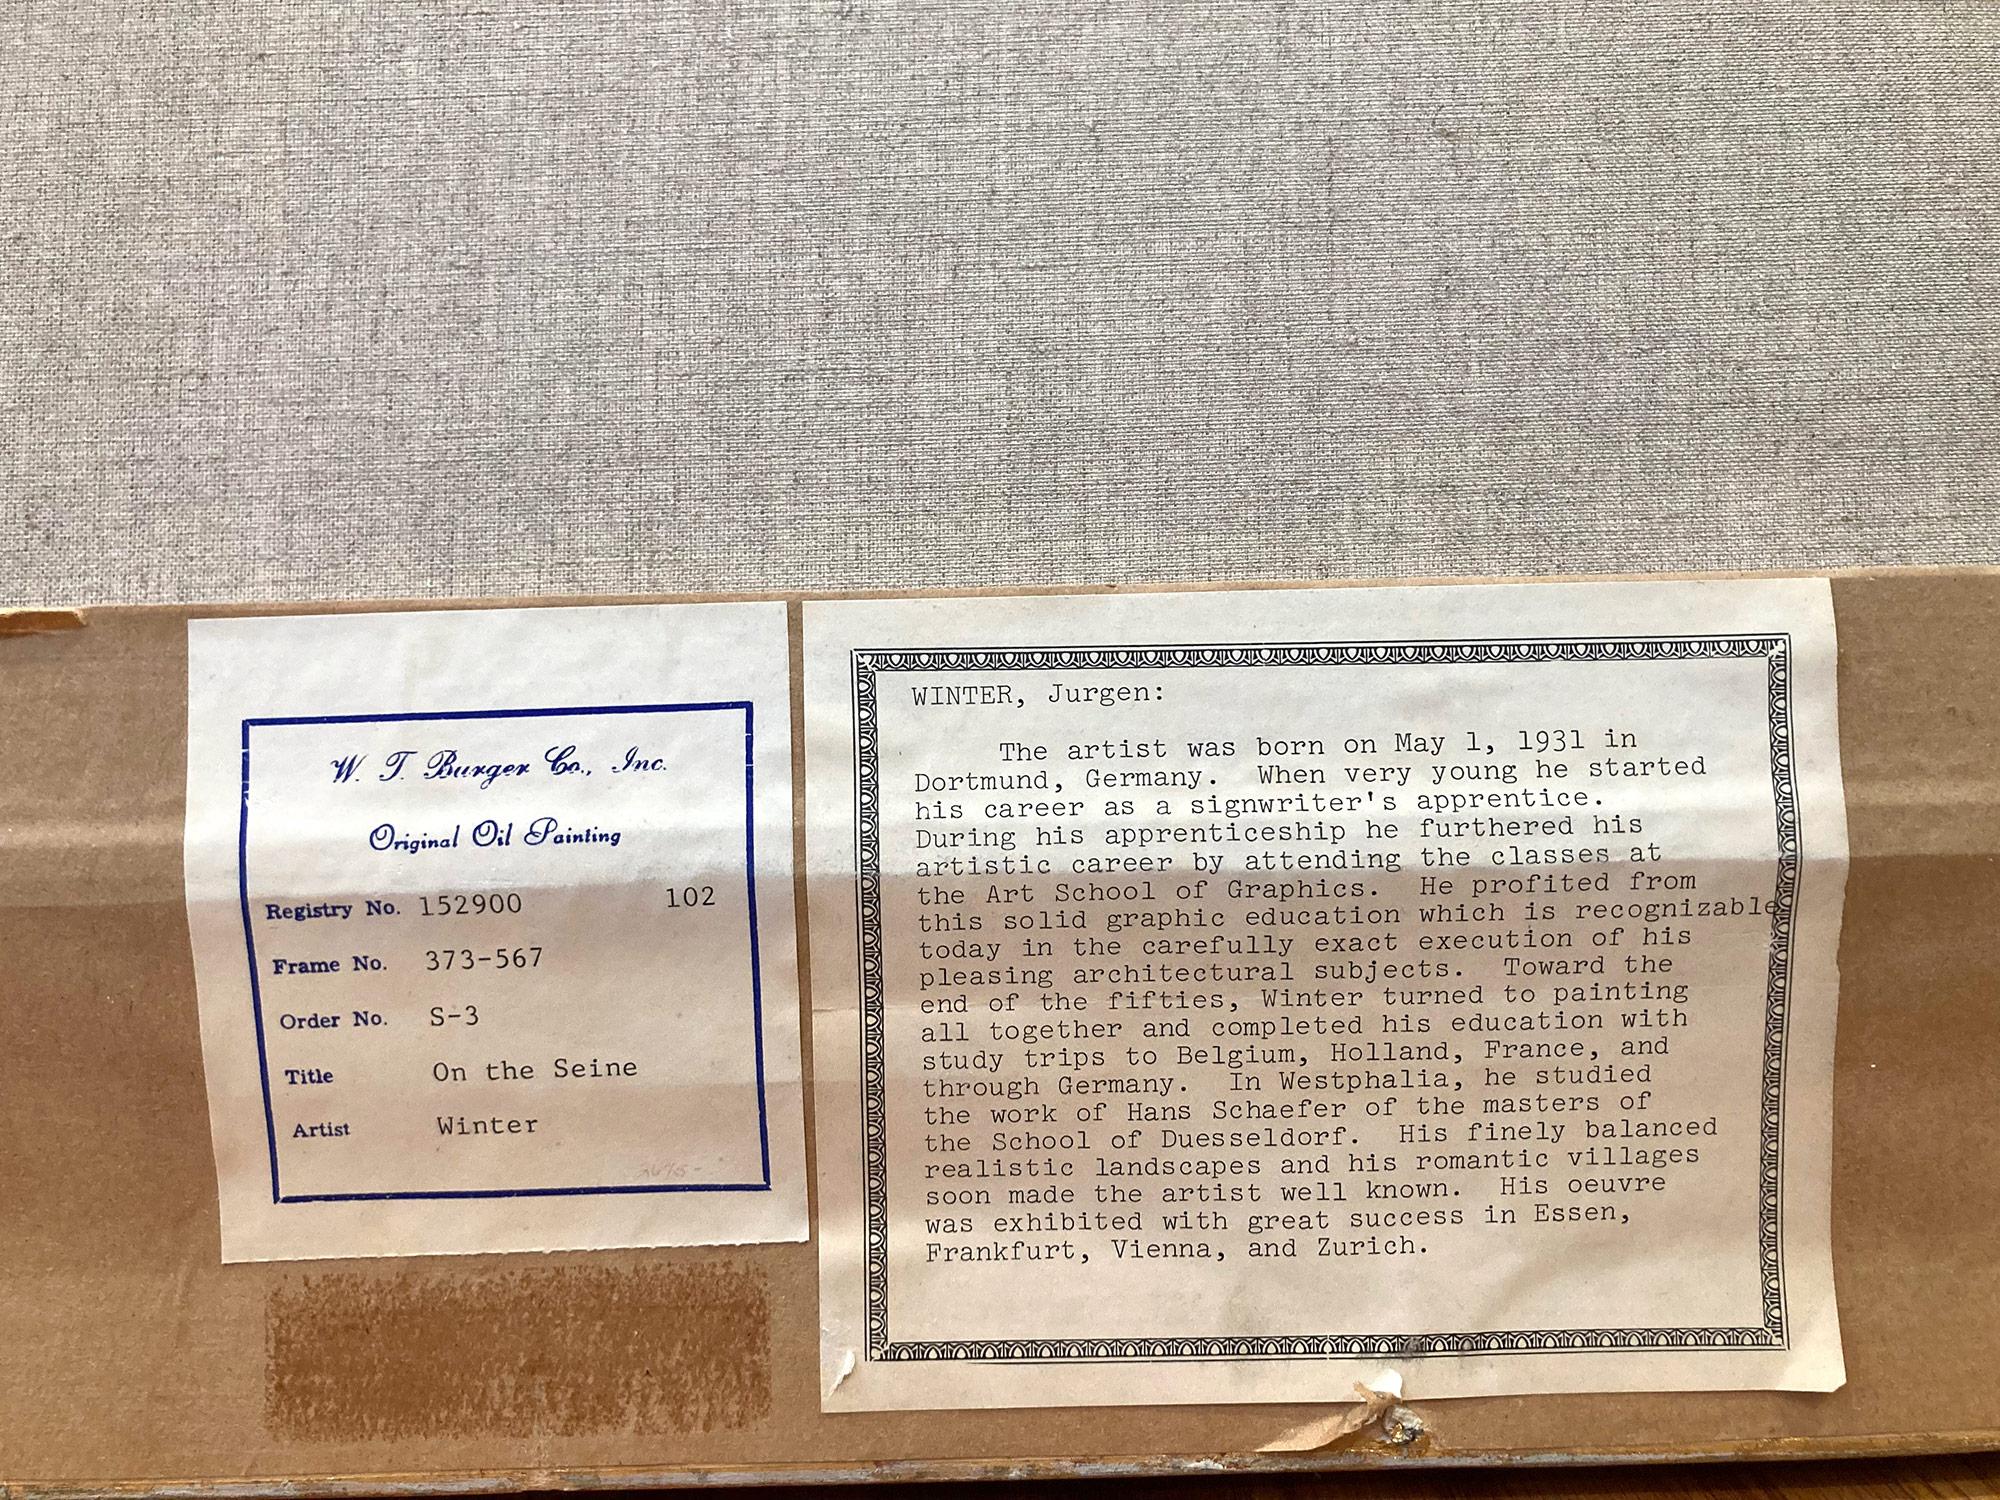 W. T. Burger Co., Inc.
Original Oil Painting
Registry No. 152900 102
Frame No. 373-567
Order No. S-3
Title On the Seine
Artist Winter
WINTER, Jurgen:
The artist was born on May 1, 1931 in
Dortmund, Germany. When very young he started
his career as a signwriter's apprentice.
During his apprenticeship he furthered his
artistic career by attending the classes at
the Art School of Graphics. He profited from
this solid graphic education which is recognizable
today in the carefully exact execution of his
pleasing architectural subjects. Toward the
end of the fifties, Winter turned to painting
all together and completed his education with
study trips to Belgium, Holland, France, and
through Germany. In Westphalia, he studied
the work of Hans Schaefer of the masters of
the School of Duesseldorf. His finely balanced
realistic landscapes and his romantic villages
soon made the artist well known. His oeuvre
was exhibited with great success in Essen,
Frankfurt, Vienna, and Zurich.